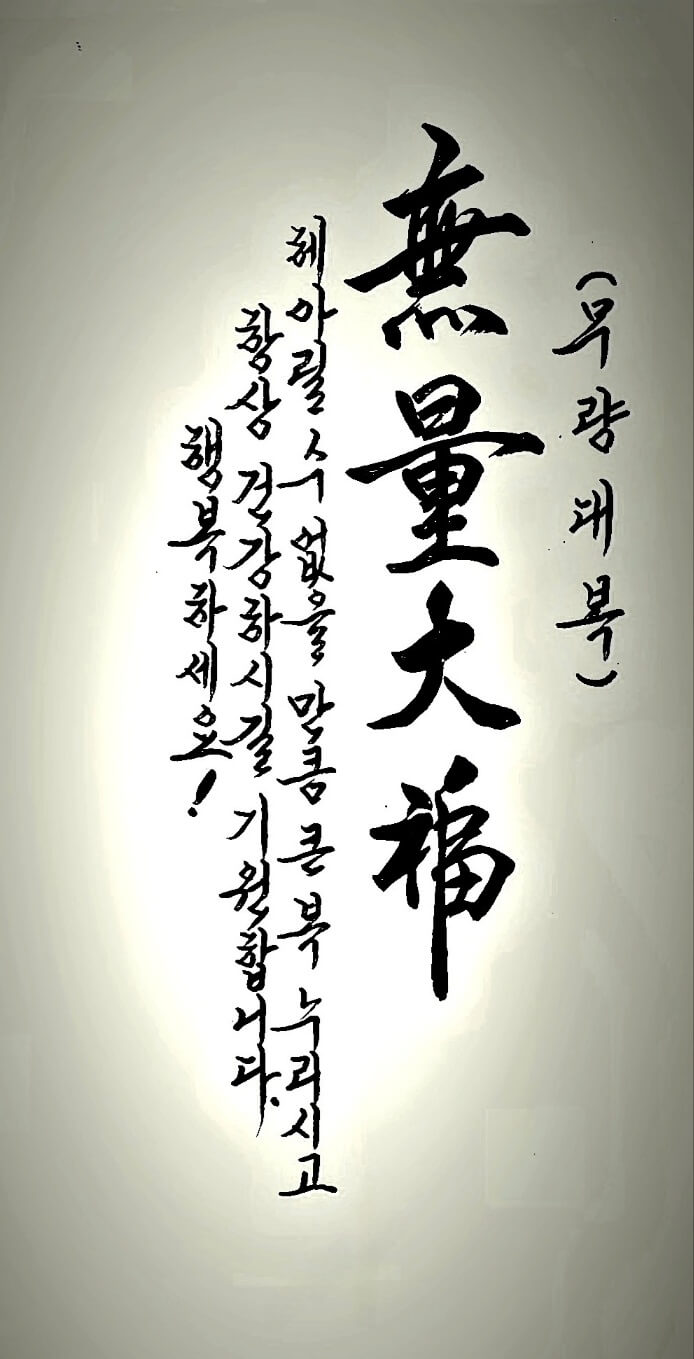 (무량대복)
無量大福
헤아릴 수 없을 만큼 큰 복 누리시고
항상 건강하시길 기원합니다.
행복하세요!